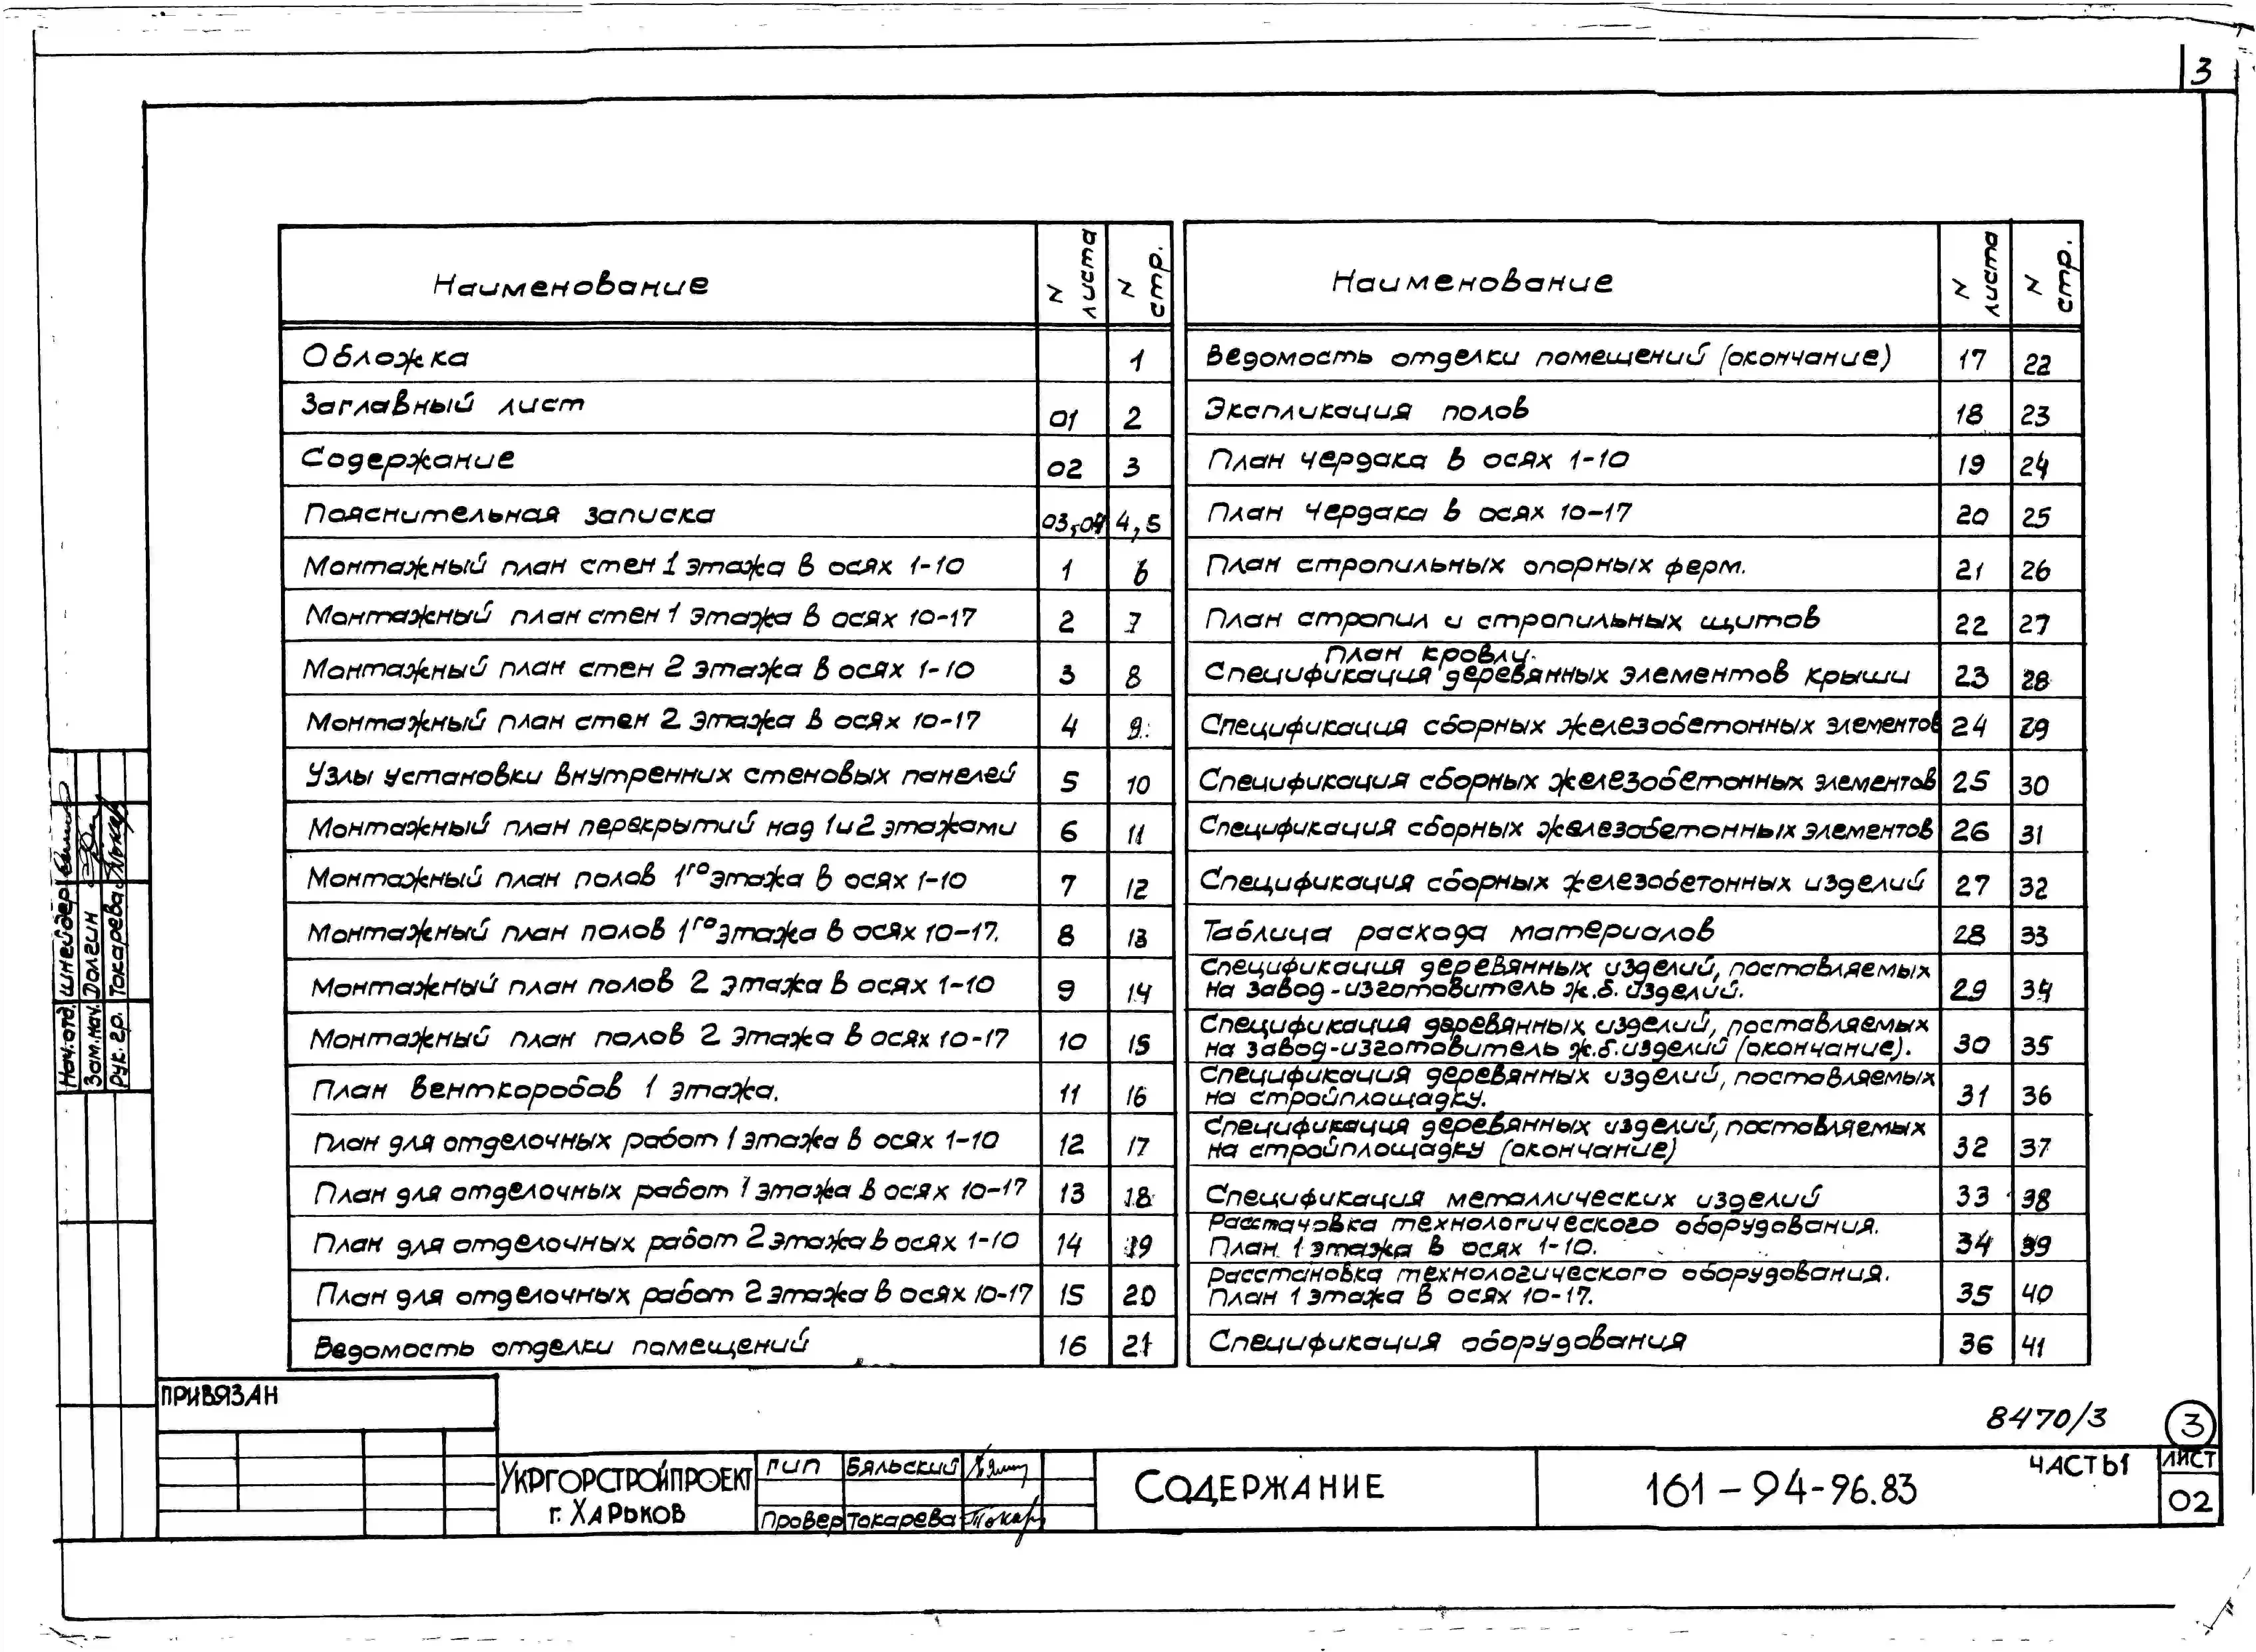 3
Наименование N листа N стр.
Обложка 1
Заглавный лист 01 2
Содержание 02 3
Пояснительная записка 03,04 4,5
Монтажный план стен 1 этажа в осях 1-10 1 6
Монтажный план стен 1 этажа в осях 10-17 2 7
Монтажный план стен 2 этажа в осях 1-10 3 8
Монтажный план стен 2 этажа в осях 10-17 4 9
Узлы установки внутренних стеновых панелей 5 10
Монтажный план перекрытий над 1 и 2 этажами 6 11
Монтажный план полов 1го этажа в осях 1-10 7 12
Монтажный план полов 1го этажа в осях 10-17. 8 13
Монтажный план полов 2 этажа в осях 1-10 9 14
Монтажный план полов 2 этажа в осях 10-17 10 15
План венткоробов 1 этажа. 11 16
План для отделочных работ 1 этажа в осях 1-10 12 17
План для отделочных работ 1 этажа в осях 10-17 13 18
План для отделочных работ 2 этажа в осях 1-10 14 19
План для отделочных работ 2 этажа в осях 10-17 15 20
Ведомость отделки помещений 16 21
Наименование N листа N стр.
Ведомость отделки помещений (окончание) 17 22
Экспликация полов 18 23
План чердака в осях 1-10 19 24
План чердака в осях 10-17 20 25
План стропильных опорных ферм. 21 26
План стропил и стропильных щитов 22 27
План кровли.
Спецификация деревянных элементов крыши 23 28
Спецификация сборных железобетонных элементов 24 29
Спецификация сборных железобетонных элементов 25 30
Спецификация сборных железобетонных элементов 26 31
Спецификация сборных железобетонных изделий 27 32
Таблица расхода материалов 28 33
Спецификация деревянных изделий, поставляемых
на завод-изготовитель ж.б. изделий. 29 34
Спецификация деревянных изделий, поставляемых
на завод-изготовитель ж.б. изделий (окончание). 30 35
Спецификация деревянных изделий, поставляемых
на стройплощадку. 31 36
Спецификация деревянных изделий, поставляемых
на стройплощадку (окончание) 32 37
Спецификация металлических изделий 33 38
Расстановка технологического оборудования.
План 1 этажа в осях 1-10. 34 39
Расстановка технологического оборудования.
План 1 этажа в осях 10-17. 35 40
Спецификация оборудования 36 41
Нач.отд. Шнейдер
Зам.нач. Долгин
Рук. гр. Токарева
ПРИВЯЗАН
8470/3 3
УКРГОРСТРОЙПРОЕКТ
г. ХАРЬКОВ
ГИП Бяльский
Провер Токарева
СОДЕРЖАНИЕ
161-94-96.83
ЧАСТЬ1
ЛИСТ
02